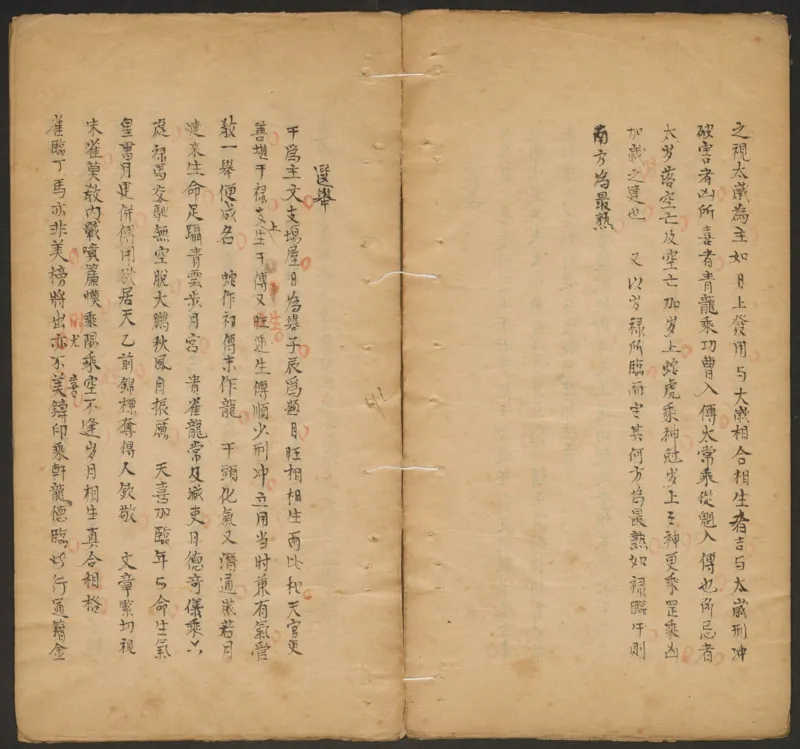 之視太歲為主如日上發用与大歲相合相生者吉与太歲刑冲
破害者凶所喜者青龍乘功曹入傳太常乘從魁入傳也所忌者
太岁落空亡及空亡加岁上蛇虎乘神冠岁上之神更乘罡乘凶
加歲之建也 又以岁禄所臨而定其何方為最熟如禄臨午則
南方為最熟
選舉
干為主文支塲屋日為舉子辰為題月旺相相生兩比和天官更
善堪干禄上支生干傳又旺逆生傳順少刑冲立用当时兼有氣
教一舉便成名 蛇作初傳末作龍 干頭化氣又濟通策若月
建来生命足躡青雲步月宮 貴雀龍常及滅吏日德奇儀乘六
處禄馬交馳無空脱大鵬秋風自振厲 天喜加臨年与命生氣
皇書月建併傳用欲居天乙前錦標奪得人欽敬 文章緊切視
朱雀莫教内戰嗔簾幙乘陽乘空不逢岁月相生真合相格
雀臨丁馬亦非美榜將出亦尤不喜美鑄印乘軒龍德臨行通籍金